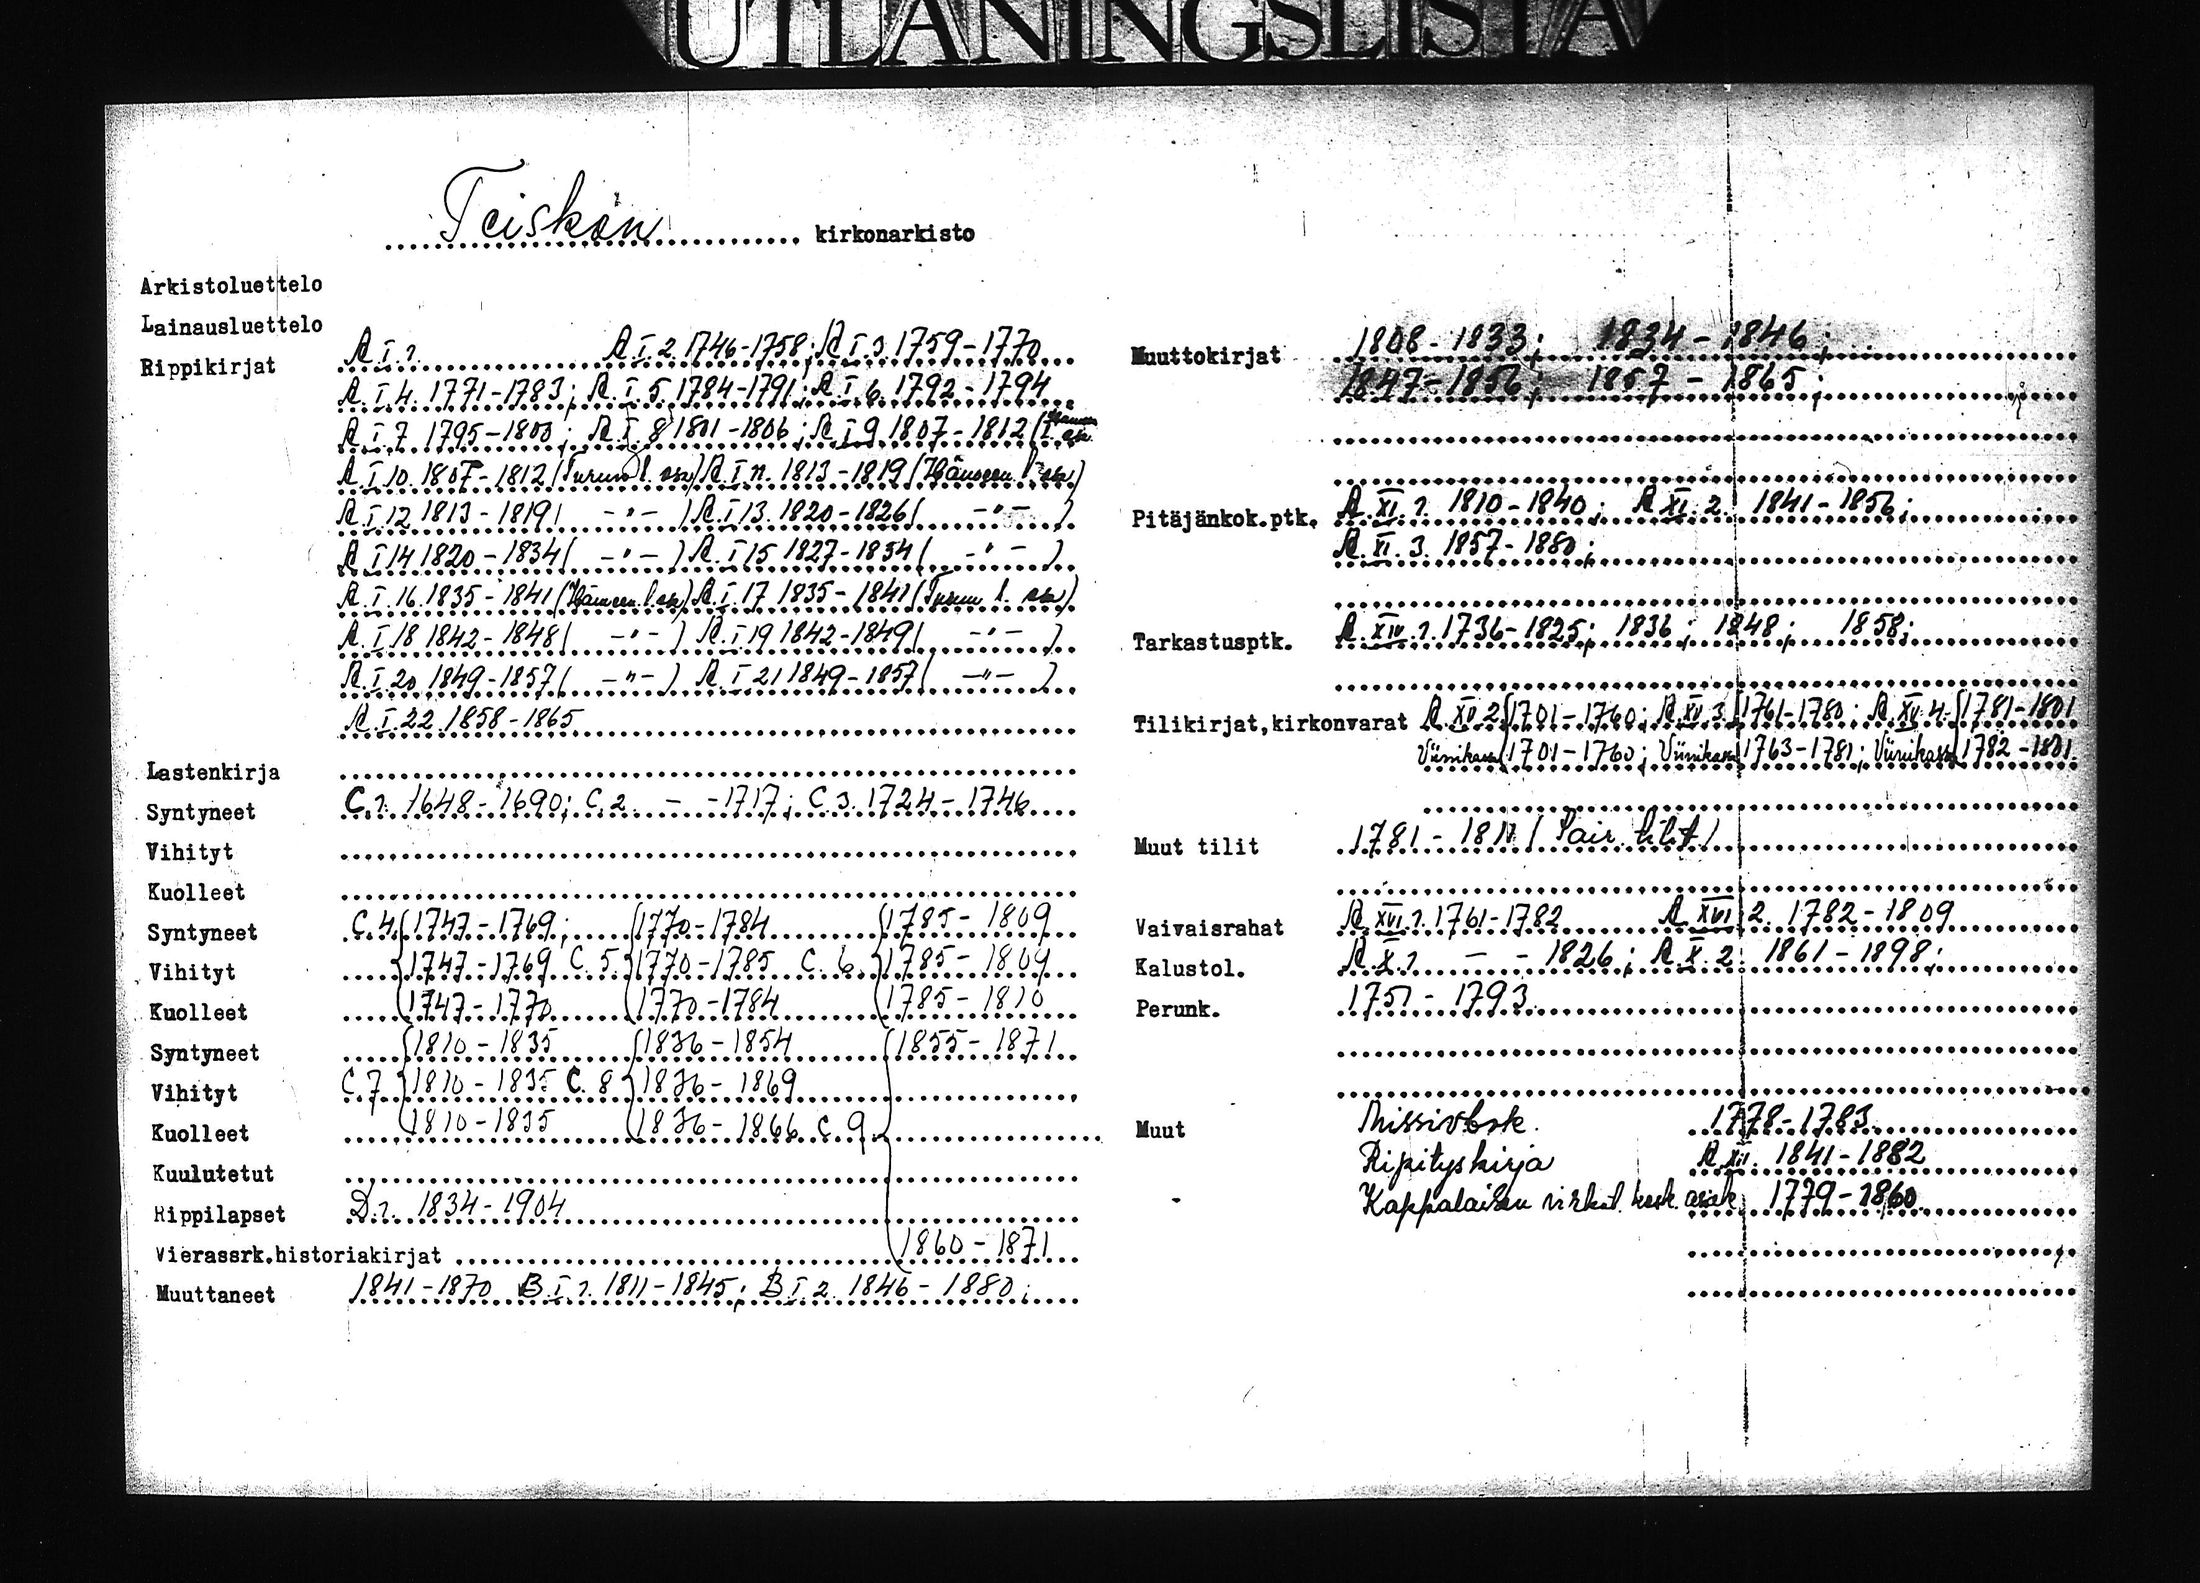 UTLÅNINGSLISTA
Teiskon kirkonarkisto
Arkistoluettelo
Lainausluettelo
Rippikirjat A.I.1. A.I.2. 1746-1758; A.I.3. 1759-1770
A.I.4. 1771-1783; A.I.5. 1784-1791; A.I.6. 1792-1794
A.I.7. 1795-1800; A.I.8 1801-1806; A.I.9 1807-1812 (
A.I.10. 1807-1812 (Turun l. osa) A.I.11. 1813-1819 (Hämeen l. osa)
A.I.12 1813-1819 ( -"- ) A.I.13. 1820-1826 ( -"- )
A.I.14 1820-1834 ( -"- ) A.I.15 1827-1834 ( -"- )
A.I.16. 1835-1841 (Hämeen l. osa) A.I.17 1835-1841 (Turun l. osa)
A.I.18 1842-1848 ( -"- ) A.I.19 1842-1849 ( -"- )
A.I.20 1849-1857 ( -"- ) A.I.21 1849-1857 ( -"- )
A.I.22 1858-1865
Lastenkirja
Syntyneet C.1. 1648-1690; C.2. - -1717; C.3. 1724-1746
Vihityt
Kuolleet
Syntyneet C.4 1747-1769; 1770-1784 1785-1809
Vihityt 1747-1769 C.5. 1770-1785 C.6. 1785-1809
Kuolleet 1747-1770 1770-1784 1785-1810
Syntyneet 1810-1835 1836-1854 1855-1871
Vihityt C.7 1810-1835 C.8 1836-1869
Kuolleet 1810-1835 1836-1866 C.9
Kuulutetut
Rippilapset D.1. 1834-1904
Vierassrk.historiakirjat 1860-1871
Muuttaneet 1841-1870 B.I.1. 1811-1845; B.I.2. 1846-1880;
Muuttokirjat 1808-1833; 1834-1846;
1847-1856; 1857-1865;
Pitäjänkok.ptk. A.XI.1. 1810-1840; A.XI.2. 1841-1856;
A.XI.3. 1857-1880;
Tarkastusptk. A.XIV.1. 1736-1825; 1836; 1848; 1858;
Tilikirjat,kirkonvarat A.XV.2 1701-1760; A.XV.3 1761-1780; A.XV.4. 1781-1801
Viinikassa 1701-1760; Viinikassa 1763-1781; Viinikassa 1782-1801.
Muut tilit 1781-1811 ( tilit)
Vaivaisrahat A.XVI.1. 1761-1782 A.XVI.2. 1782-1809
Kalustol. A.X.1 - - 1826; A.X.2. 1861-1898;
Perunk. 1751-1793.
Muut Missivbok. 1778-1783.
Ripityskirja A.XII. 1841-1882
Kappalaisen virkat. kosk. asiak. 1779-1860.